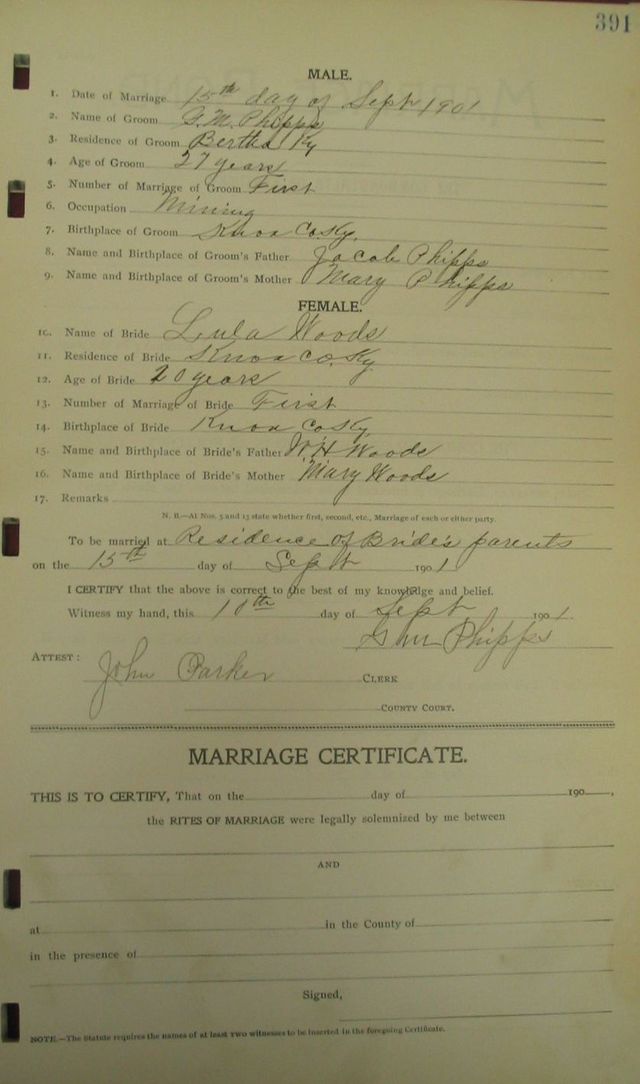 391
MALE.
1. Date of Marriage 15th day of Sept 1901
2. Name of Groom G. M. Phipps
3. Residence of Groom Bertha Ky
4. Age of Groom 27 years
5. Number of Marriage of Groom First
6. Occupation Mining
7. Birthplace of Groom Knox Co. Ky.
8. Name and Birthplace of Groom's Father Jacob Phipps
9. Name and Birthplace of Groom's Mother Mary Phipps
FEMALE.
10. Name of Bride Lula Woods
11. Residence of Bride Knox Co. Ky
12. Age of Bride 20 years
13. Number of Marriage of Bride First
14. Birthplace of Bride Knox Co Ky
15. Name and Birthplace of Bride's Father W. H. Woods
16. Name and Birthplace of Bride's Mother Mary Woods
17. Remarks
N. B.—At Nos. 5 and 13 state whether first, second, etc., Marriage of each or either party.
To be married at Residence of Bride's parents
on the 15th day of Sept 1901
I CERTIFY that the above is correct to the best of my knowledge and belief.
Witness my hand, this 10th day of Sept 1901
G M Phipps
ATTEST: John Parker CLERK
COUNTY COURT.
MARRIAGE CERTIFICATE.
THIS IS TO CERTIFY, That on the day of 190 .
the RITES OF MARRIAGE were legally solemnized by me between
AND
at in the County of
in the presence of
Signed,
NOTE.—The Statute requires the names of at least TWO witnesses to be inserted in the foregoing Certificate.